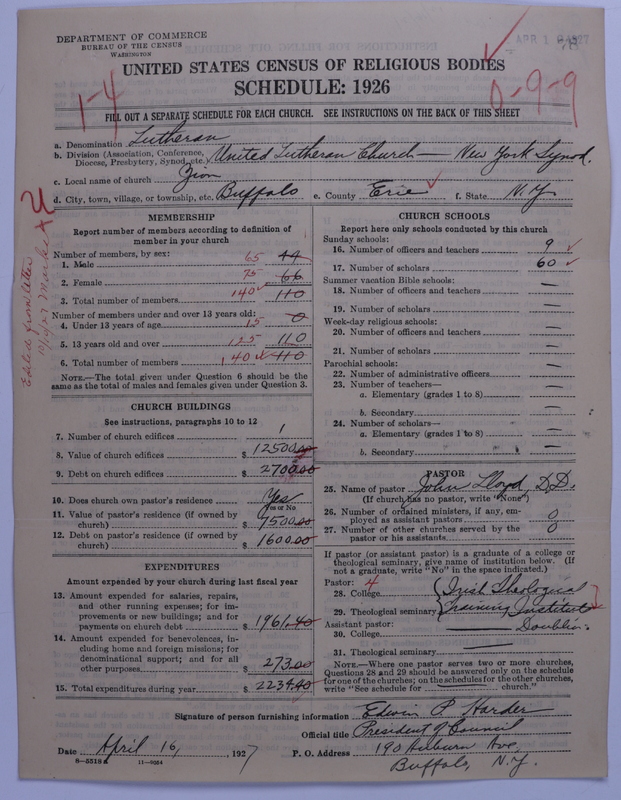 DEPARTMENT OF COMMERCE
BUREAU OF THE CENSUS
WASHINGTON
UNITED STATES CENSUS OF RELIGIOUS BODIES
SCHEDULE: 1926
1-4
0-9-9
FILL OUT A SEPARATE SCHEDULE FOR EACH CHURCH. SEE INSTRUCTIONS ON THE BACK OF THIS SHEET
a. Denomination Lutheran
b. Division (Association, Conference, Diocese, Presbytery, Synod, etc.) United Lutheran Church — New York Synod.
c. Local name of church Zion
d. City, town, village, or township, etc. Buffalo e. County Erie f. State N.Y.
MEMBERSHIP
Report number of members according to definition of
member in your church
Number of members, by sex:
1. Male 65 44
2. Female 75 66
3. Total number of members 140 110
Number of members under and over 13 years old:
4. Under 13 years of age 15 0
5. 13 years old and over 125 110
6. Total number of members 140 110
NOTE.—The total given under Question 6 should be the
same as the total of males and females given under Question 3.
CHURCH BUILDINGS
See instructions, paragraphs 10 to 12
7. Number of church edifices 1
8. Value of church edifices $ 12500.00
9. Debt on church edifices $ 2700.00
10. Does church own pastor's residence Yes
Yes or No
11. Value of pastor's residence (if owned by
church) $ 7500.00
12. Debt on pastor's residence (if owned by
church) $ 1600.00
EXPENDITURES
Amount expended by your church during last fiscal year
13. Amount expended for salaries, repairs,
and other running expenses; for im-
provements or new buildings; and for
payments on church debt $ 1961.40
14. Amount expended for benevolences, in-
cluding home and foreign missions; for
denominational support; and for all
other purposes $ 273.00
15. Total expenditures during year $ 2234.40
CHURCH SCHOOLS
Report here only schools conducted by this church
Sunday schools:
16. Number of officers and teachers 9
17. Number of scholars 60
Summer vacation Bible schools:
18. Number of officers and teachers —
19. Number of scholars —
Week-day religious schools:
20. Number of officers and teachers —
21. Number of scholars —
Parochial schools:
22. Number of administrative officers —
23. Number of teachers—
a. Elementary (grades 1 to 8) —
b. Secondary —
24. Number of scholars—
a. Elementary (grades 1 to 8) —
b. Secondary —
PASTOR
25. Name of pastor John Lloyd, D.D.
(If church has no pastor, write "None")
26. Number of ordained ministers, if any, em-
ployed as assistant pastors 0
27. Number of other churches served by the
pastor or his assistants 0
If pastor (or assistant pastor) is a graduate of a college or
theological seminary, give name of institution below. (If
not a graduate, write "No" in the space indicated.)
Pastor: 4
28. College Irish Theological
29. Theological seminary Training Institute
Assistant pastor: Doublin.
30. College
31. Theological seminary —
NOTE.—Where one pastor serves two or more churches,
Questions 28 and 29 should be answered only on the schedule
for one of the churches; on the schedules for the other churches,
write "See schedule for church."
Signature of person furnishing information Edwin P. Harder
Official title President of Council
Date April 16, 1927 P. O. Address 190 Auburn Ave,
Buffalo, N.Y.
8-5518a 11-9254